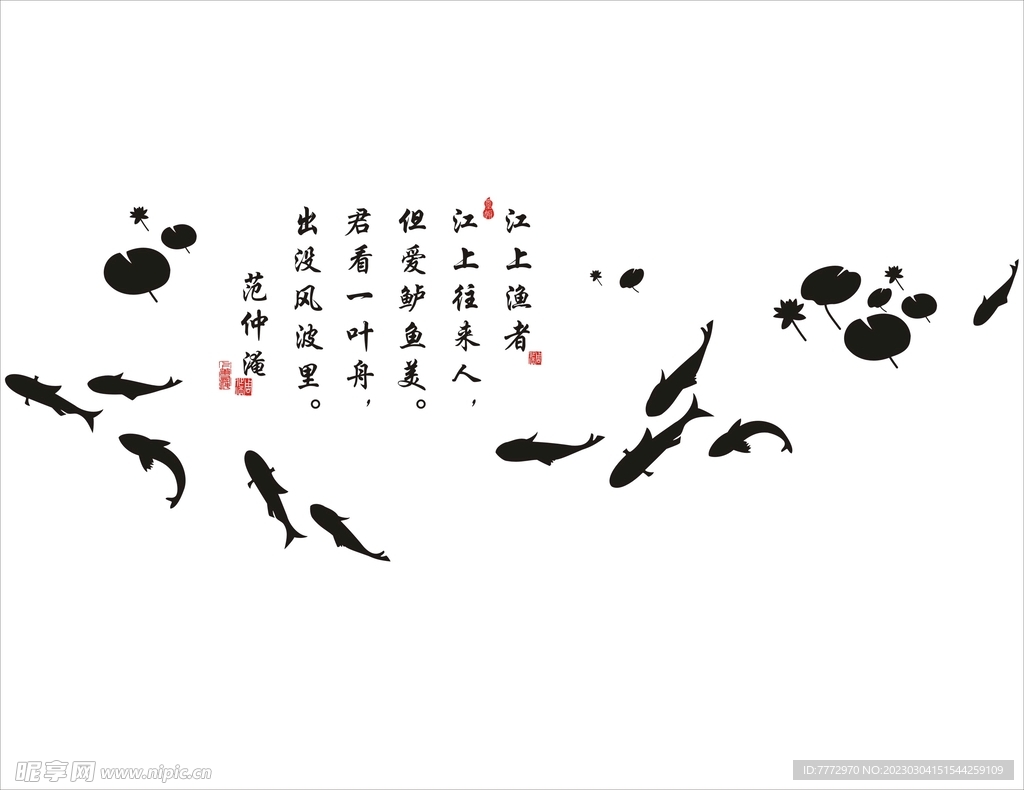 江上渔者
江上往来人，
但爱鲈鱼美。
君看一叶舟，
出没风波里。
范仲淹
昵享网 www.nipic.cn
ID:7772970 NO:20230304151544259109